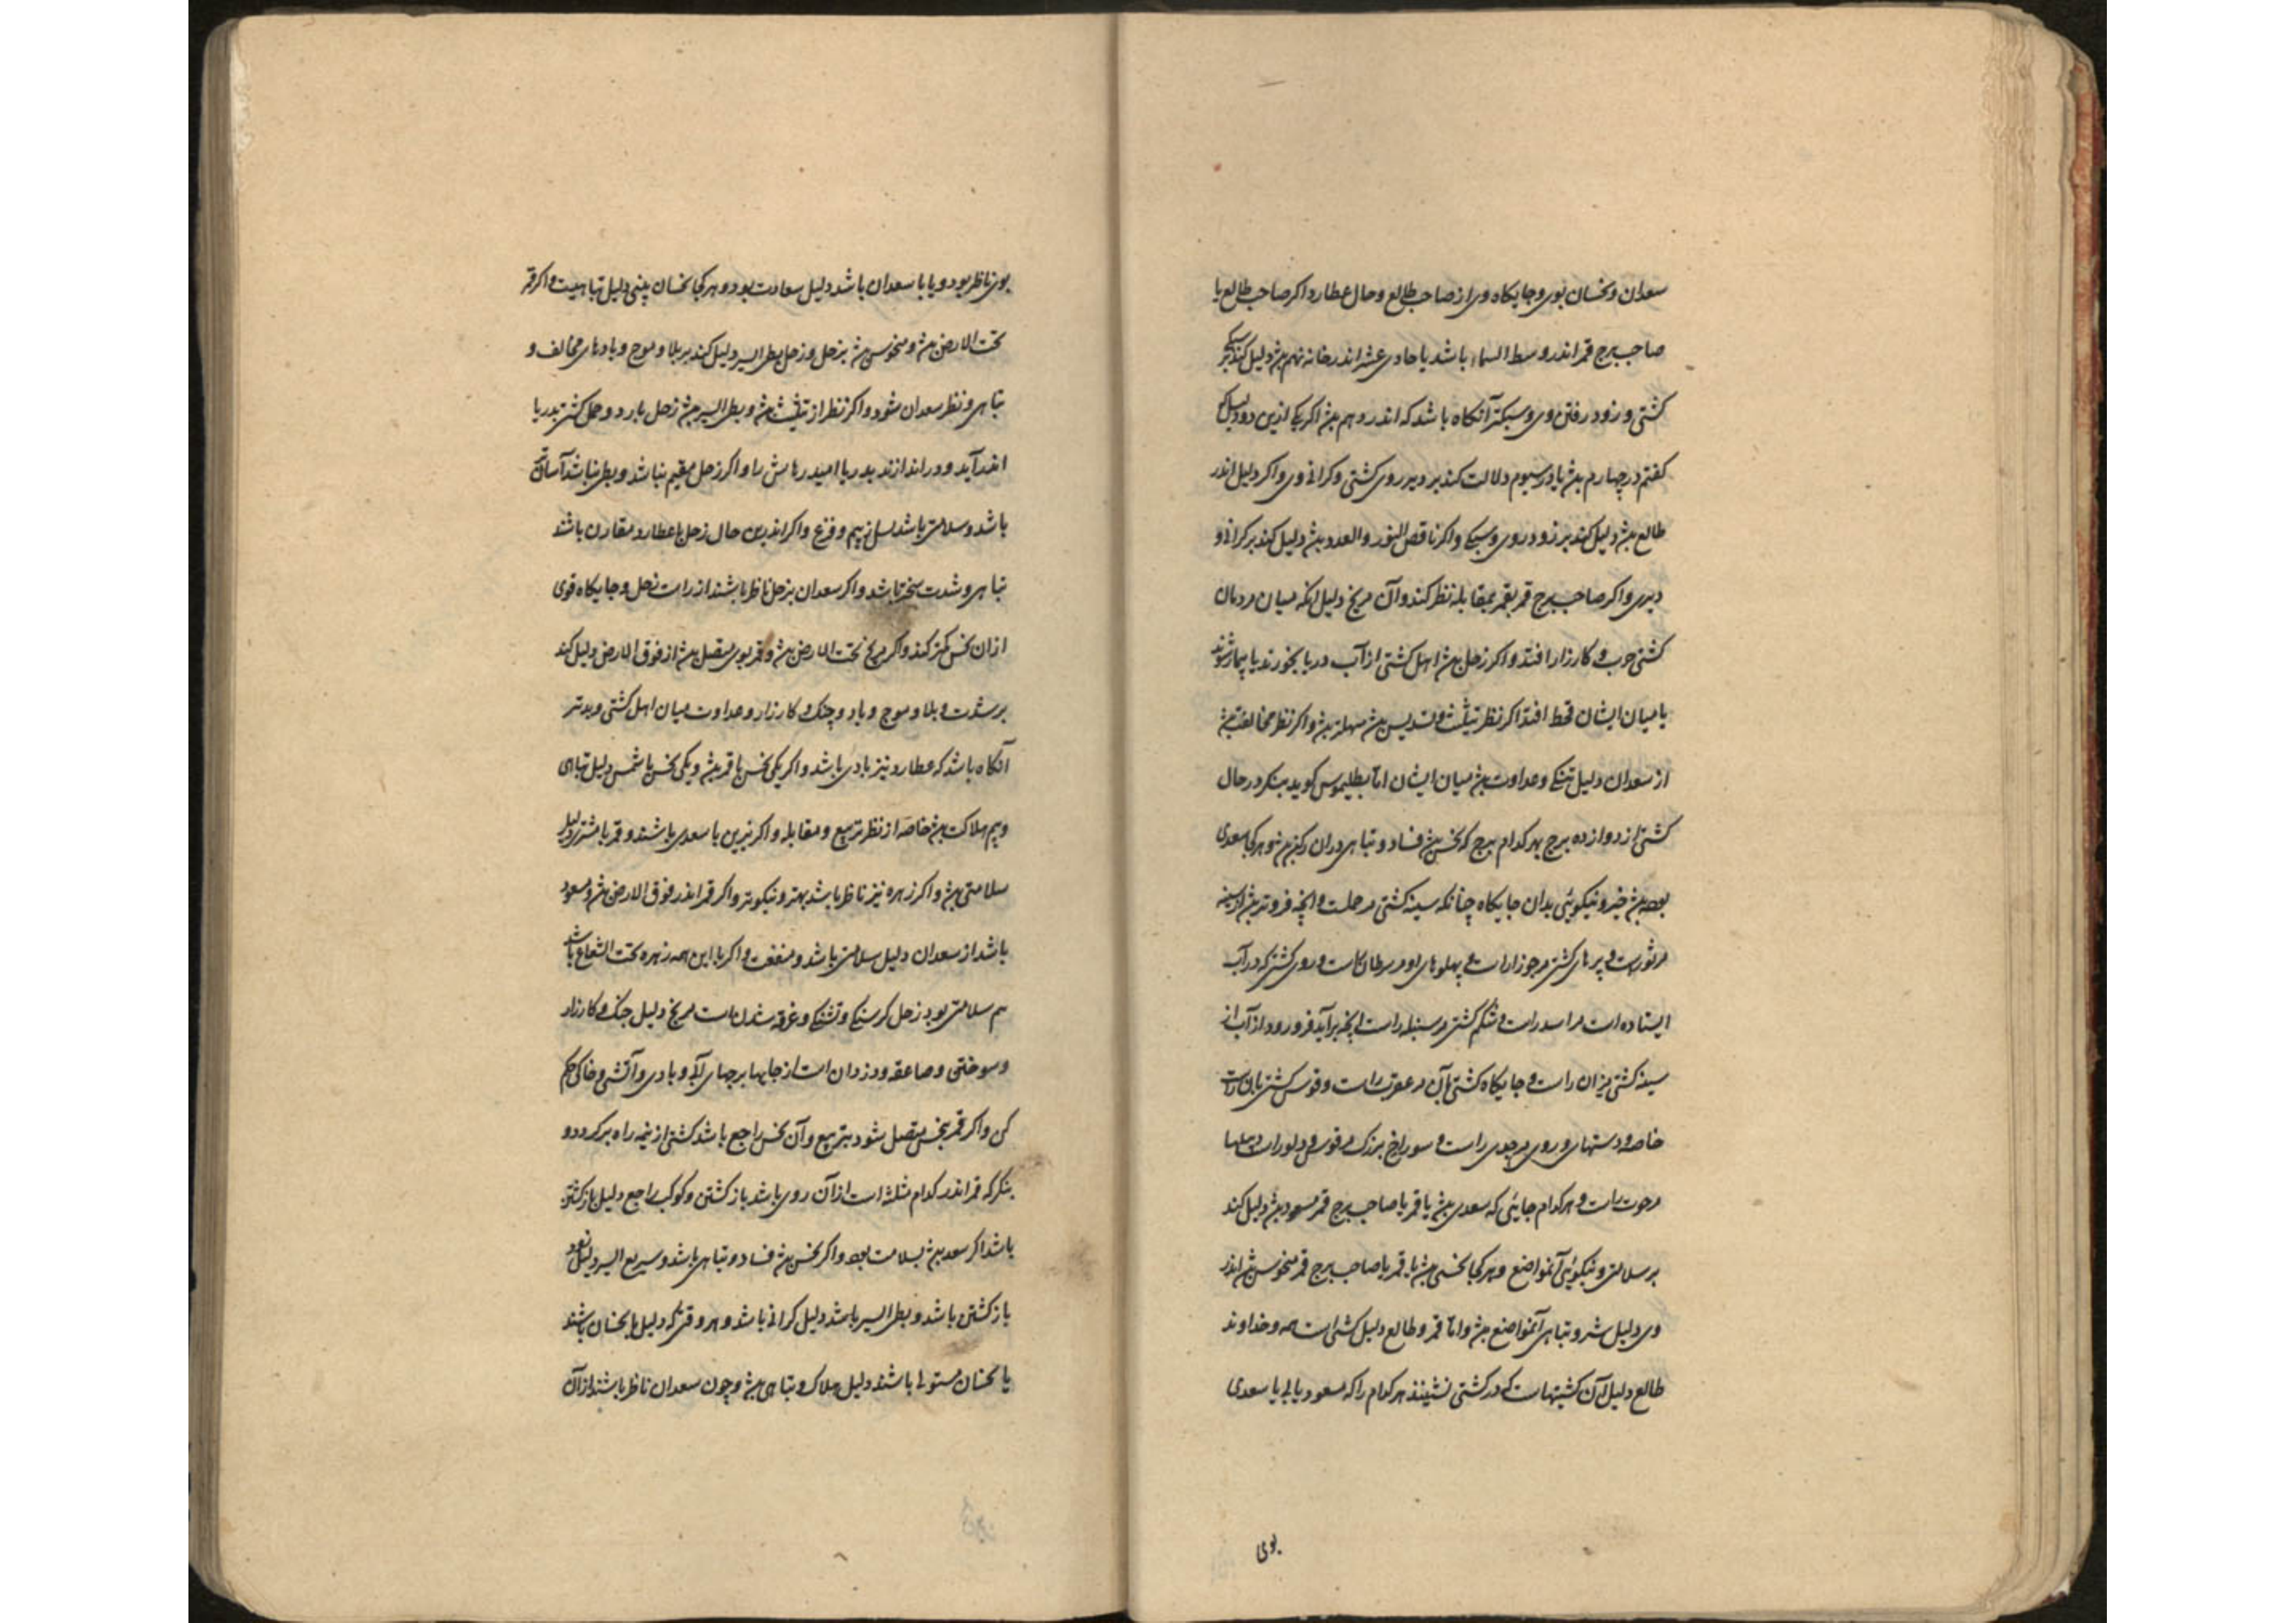 سعدان و نحسان بوی و جایکاه وی از صاحب طالع و حال عطارد و اکر صاحب طالع یا
صاحب برج قمر اندر وسط السماء باشد یا حادی عشر اندر خانه نهم بود دلیل کند بر سبکی
کشتی و زود رفتن وی و سبکتر آنکاه باشد که اندر دهم بود اکر یکی ازین دو دلیل که
کفتم در چهارم بود یا در سیوم دلالت کند بر دیر روی کشتی و کرانی وی و اکر دلیل اندر
طالع بود دلیل کند بر زود روی و سبکی و اکر ناقص النور والعدد بود دلیل کند بر کرانی و
دیری و اکر صاحب برج قمر بقمر بمقابله نظر کند و آن مریخ دلیل انکه میان مردمان
کشتی حرب و کارزار افتد و اکر زحل بود اهل کشتی از آب دریا بخورند یا بیمار شوند
یا میان ایشان قحط افتد اکر نظر تثلیث و تسدیس بود سهلتر بود و اکر نظر مخالفت بود
از سعدان دلیل تنکی و عداوت بود میان ایشان اما بطلیموس کوید بنکر در حال
کشتی از دوازده برج بهر کدام برج که نحس بود فساد و تباهی دران رکن بود و هر کجا سعدی
بود خیر و نیکوئی بدان جایکاه چنانکه سینه کشتی مر حملست و انچه فروتر بود از سینه
مر ثور راست و پرهای کشتی مر جوزا راست و پهلوهای او مر سرطان راست و روی کشتی که در آب
ایستاده است مر اسد راست و شکم کشتی مر سنبله راست و انچه برآید و فرو رود از آب از
سینه کشتی میزان راست و جایکاه کشتی بان مر عقرب راست و قوس کشتی بان راست
خاصه و دستهای و روی مر جدی راست و سوراخ بزرک مر قوس و دلو راست و
مر حوت راست و هر کدام جایئی که سعدی بود یا قمر یا صاحب برج قمر مسعود بود دلیل کند
بر سلامتی و نیکوئی آنمواضع و هر کجا نحسی بود یا قمر یا صاحب برج قمر منحوس بود اندر
وی دلیل شر و تباهی آنمواضع بود و اما قمر و طالع دلیل کشتی است همه و خداوند
طالع دلیل آن کشیتهاست که در کشتی نشینند هر کدام را که مسعود یابی یا سعدی
بوی
بوی ناظر بود و یا با سعدان باشد دلیل سعادت بود و هر کجا نحسان بینی دلیل تباهیست و اکر قمر
تحت الارض بود و منحوس بود بزحل و زحل بطی السیر دلیل کند بر بلا و موج و بادهای مخالف و
تباهی و نظر سعدان شود و اکر نظر از تثلیث بود و بطی السیر بود زحل بارد و حمل کشتی بدریا
اندر آید و در اندازند بدریا امید رهایش را و اکر زحل مقیم نباشد و بطی نباشد آسانتر
باشد و سلامتی باشد پس از بیم و فزع و اکر اندرین حال زحل با عطارد مقارن باشد
تباهی و شدت سختر باشد و اکر سعدان بزحل ناظر باشند از راست زحل و جایکاه قوی
ازان نحس کمتر کند و اکر مریخ تحت الارض بود و قمر بوی متصل بود از فوق الارض دلیل کند
بر شدت و بلا و موج و باد و جنک و کارزار و عداوت میان اهل کشتی و بدتر
آنکاه باشد که عطارد نیز با وی باشد و اکر یکی نحس با قمر بود و یکی نحس با شمس دلیل تباهی
و بیم هلاکت بود خاصه از نظر تربیع و مقابله و اکر نیرین با سعدی باشند و قمر با مشتری دلیل
سلامتی بود و اکر زهره نیز ناظر باشد بهتر و نیکوتر و اکر قمر اندر فوق الارض بود و مسعود
باشد از سعدان دلیل سلامتی باشد و منفعت و اکر با این همه زهره تحت الشعاع باشد
هم سلامتی بود زحل کرسنکی و تشنکی و غرقه شدن است مریخ دلیل جنک و کارزار
و سوختن و صاعقه و دزدان است از جایها برجهای آبی و بادی و آتشی و خاکی حکم
کن و اکر قمر بنحس متصل شود بتربیع و آن نحس راجع باشد کشتی از نیمه راه برکردد و
بنکر که قمر اندر کدام مثلثه است از آن روی باشد بازکشتن و کوکب راجع دلیل بازکشتن
باشد اکر سعد بود بسلامت بود و اکر نحس بود فساد و تباهی باشد و سریع السیر دلیل زود
بازکشتن باشد و بطی السیر باشد دلیل کرانی باشد و هر وقتی که دلیل با نحسان باشند
یا نحسان مستولی باشند دلیل هلاک و تباهی بود و چون سعدان ناظر باشند از آن